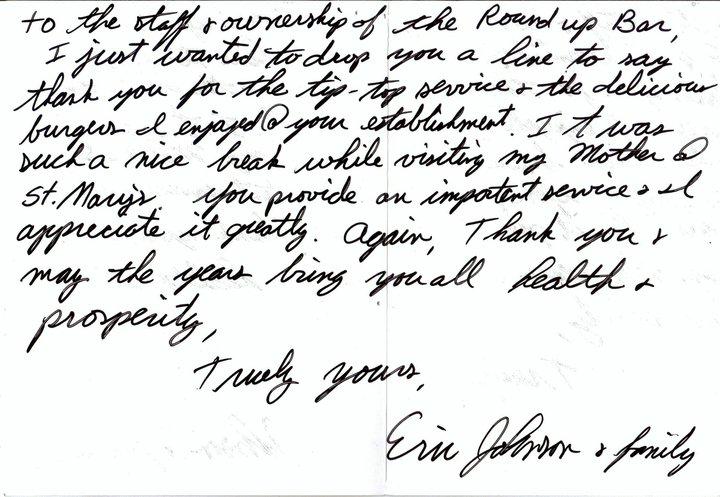 to the staff & ownership of the Round up Bar,
I just wanted to drop you a line to say
thank you for the tip-top service & the delicious
burgers I enjoyed @ your establishment. It was
such a nice break while visiting my Mother @
St. Mary's. you provide an important service & I
appreciate it greatly. Again, Thank you &
may the years bring you all health &
prosperity,
Truly yours,
Eric Johnson & family